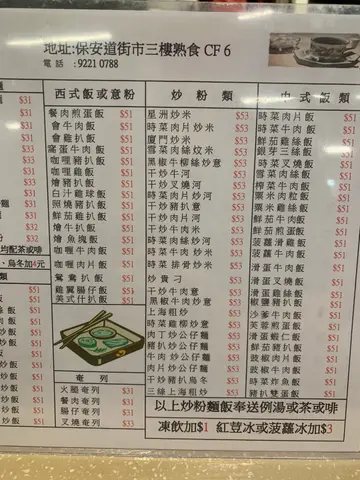 地址:保安道街市三樓熟食 CF 6
電話 :9221 0788
西式飯或意粉
餐肉煎蛋飯 $51
會牛肉飯 $51
會雞扒飯 $51
窩蛋牛肉飯 $51
咖喱豬扒飯 $51
咖喱雞飯 $51
燴豬扒飯 $51
白汁雞球飯 $51
照燒豬扒飯 $51
鮮茄雞扒飯 $51
燴牛扒飯 $51
燴魚塊飯 $51
咖喱牛肉飯 $51
咖喱肉片飯 $51
鴛鴦扒飯 $51
雞翼腸仔飯 $51
美式什扒飯 $51
奄列
火腿奄列 $31
餐肉奄列 $31
腸仔奄列 $31
叉燒奄列 $33
炒粉類
星洲炒米 $53
時菜肉片炒米 $53
廈門炒米 $53
雪菜肉絲炆米 $53
黑椒牛柳絲炒意 $53
干炒牛河 $53
干炒叉燒河 $53
時菜肉片炒河 $53
干炒豬扒意 $53
干炒肉片河 $53
干炒肉絲河 $53
時菜肉絲炒河 $53
時菜牛肉炒河 $53
時菜排骨炒米 $53
炒貴刁 $53
干炒牛肉意 $53
黑椒牛肉炒意 $53
上海粗炒 $53
時菜雞柳炒意 $53
肉丁炒公仔麵 $53
豬扒炒公仔麵 $53
牛肉炒公仔麵 $53
干炒豬扒烏冬 $53
三絲上海粗炒 $53
中式飯類
時菜肉片飯 $51
時菜牛肉飯 $51
鮮茄雞絲飯 $51
銀芽三絲飯 $51
時菜叉燒飯 $51
雪菜肉絲飯 $51
榨菜牛肉飯 $51
粟米肉粒飯 $51
粟米雞絲飯 $51
鮮茄牛肉飯 $51
菠蘿滑雞飯 $51
菠蘿雞絲飯 $51
滑蛋牛肉飯 $51
滑蛋叉燒飯 $51
滑蛋雞絲飯 $51
椒鹽豬扒飯 $51
沙爹牛肉飯 $51
芙蓉煎蛋飯 $51
滑蛋蝦仁飯 $51
鮮茄豬扒飯 $51
豉椒肉片飯 $51
豉椒牛肉飯 $51
時菜炸魚飯 $51
時菜雙蛋飯 $51
以上炒粉麵飯奉送例湯或茶或啡
凍飲加$1 紅荳冰或菠蘿冰加$3